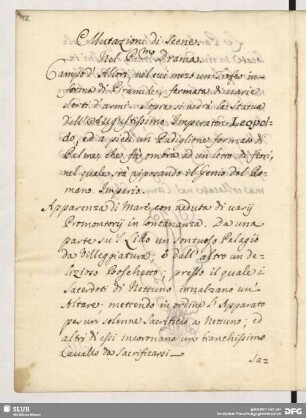 Mutazioni di Scene
Nel Pmo Drama.
Campo d'Allori, nel cui mezo un Trofeo in
forma di Piramide, formata di varie
sorti d'armi, sopra si vedrà la Statua
dell'Augustissimo Imperator Leopol-
do, ed a piedi un Padiglione formato di
Palme, che fà ombra ad un letto di fiori,
nel quale stà riposando il Genio del Ro-
mano Imperio.
Apparenza di Mare con veduta di varij
Promontorij in lontananza. Da una
parte su'l Lido un sontuoso Palagio
da Villeggiatura; e dall'altro un de-
lizioso Boschetto; presso il quale i
Sacerdoti di Nettuno innalzano un'
Altare, mettendo in ordine l'Apparato
per un solenne Sacrificio a Nettuno; ed
altri di essi incoronano un bianchissimo
Cavallo da Sacrificarsi
Sa-
SLUB
DFG